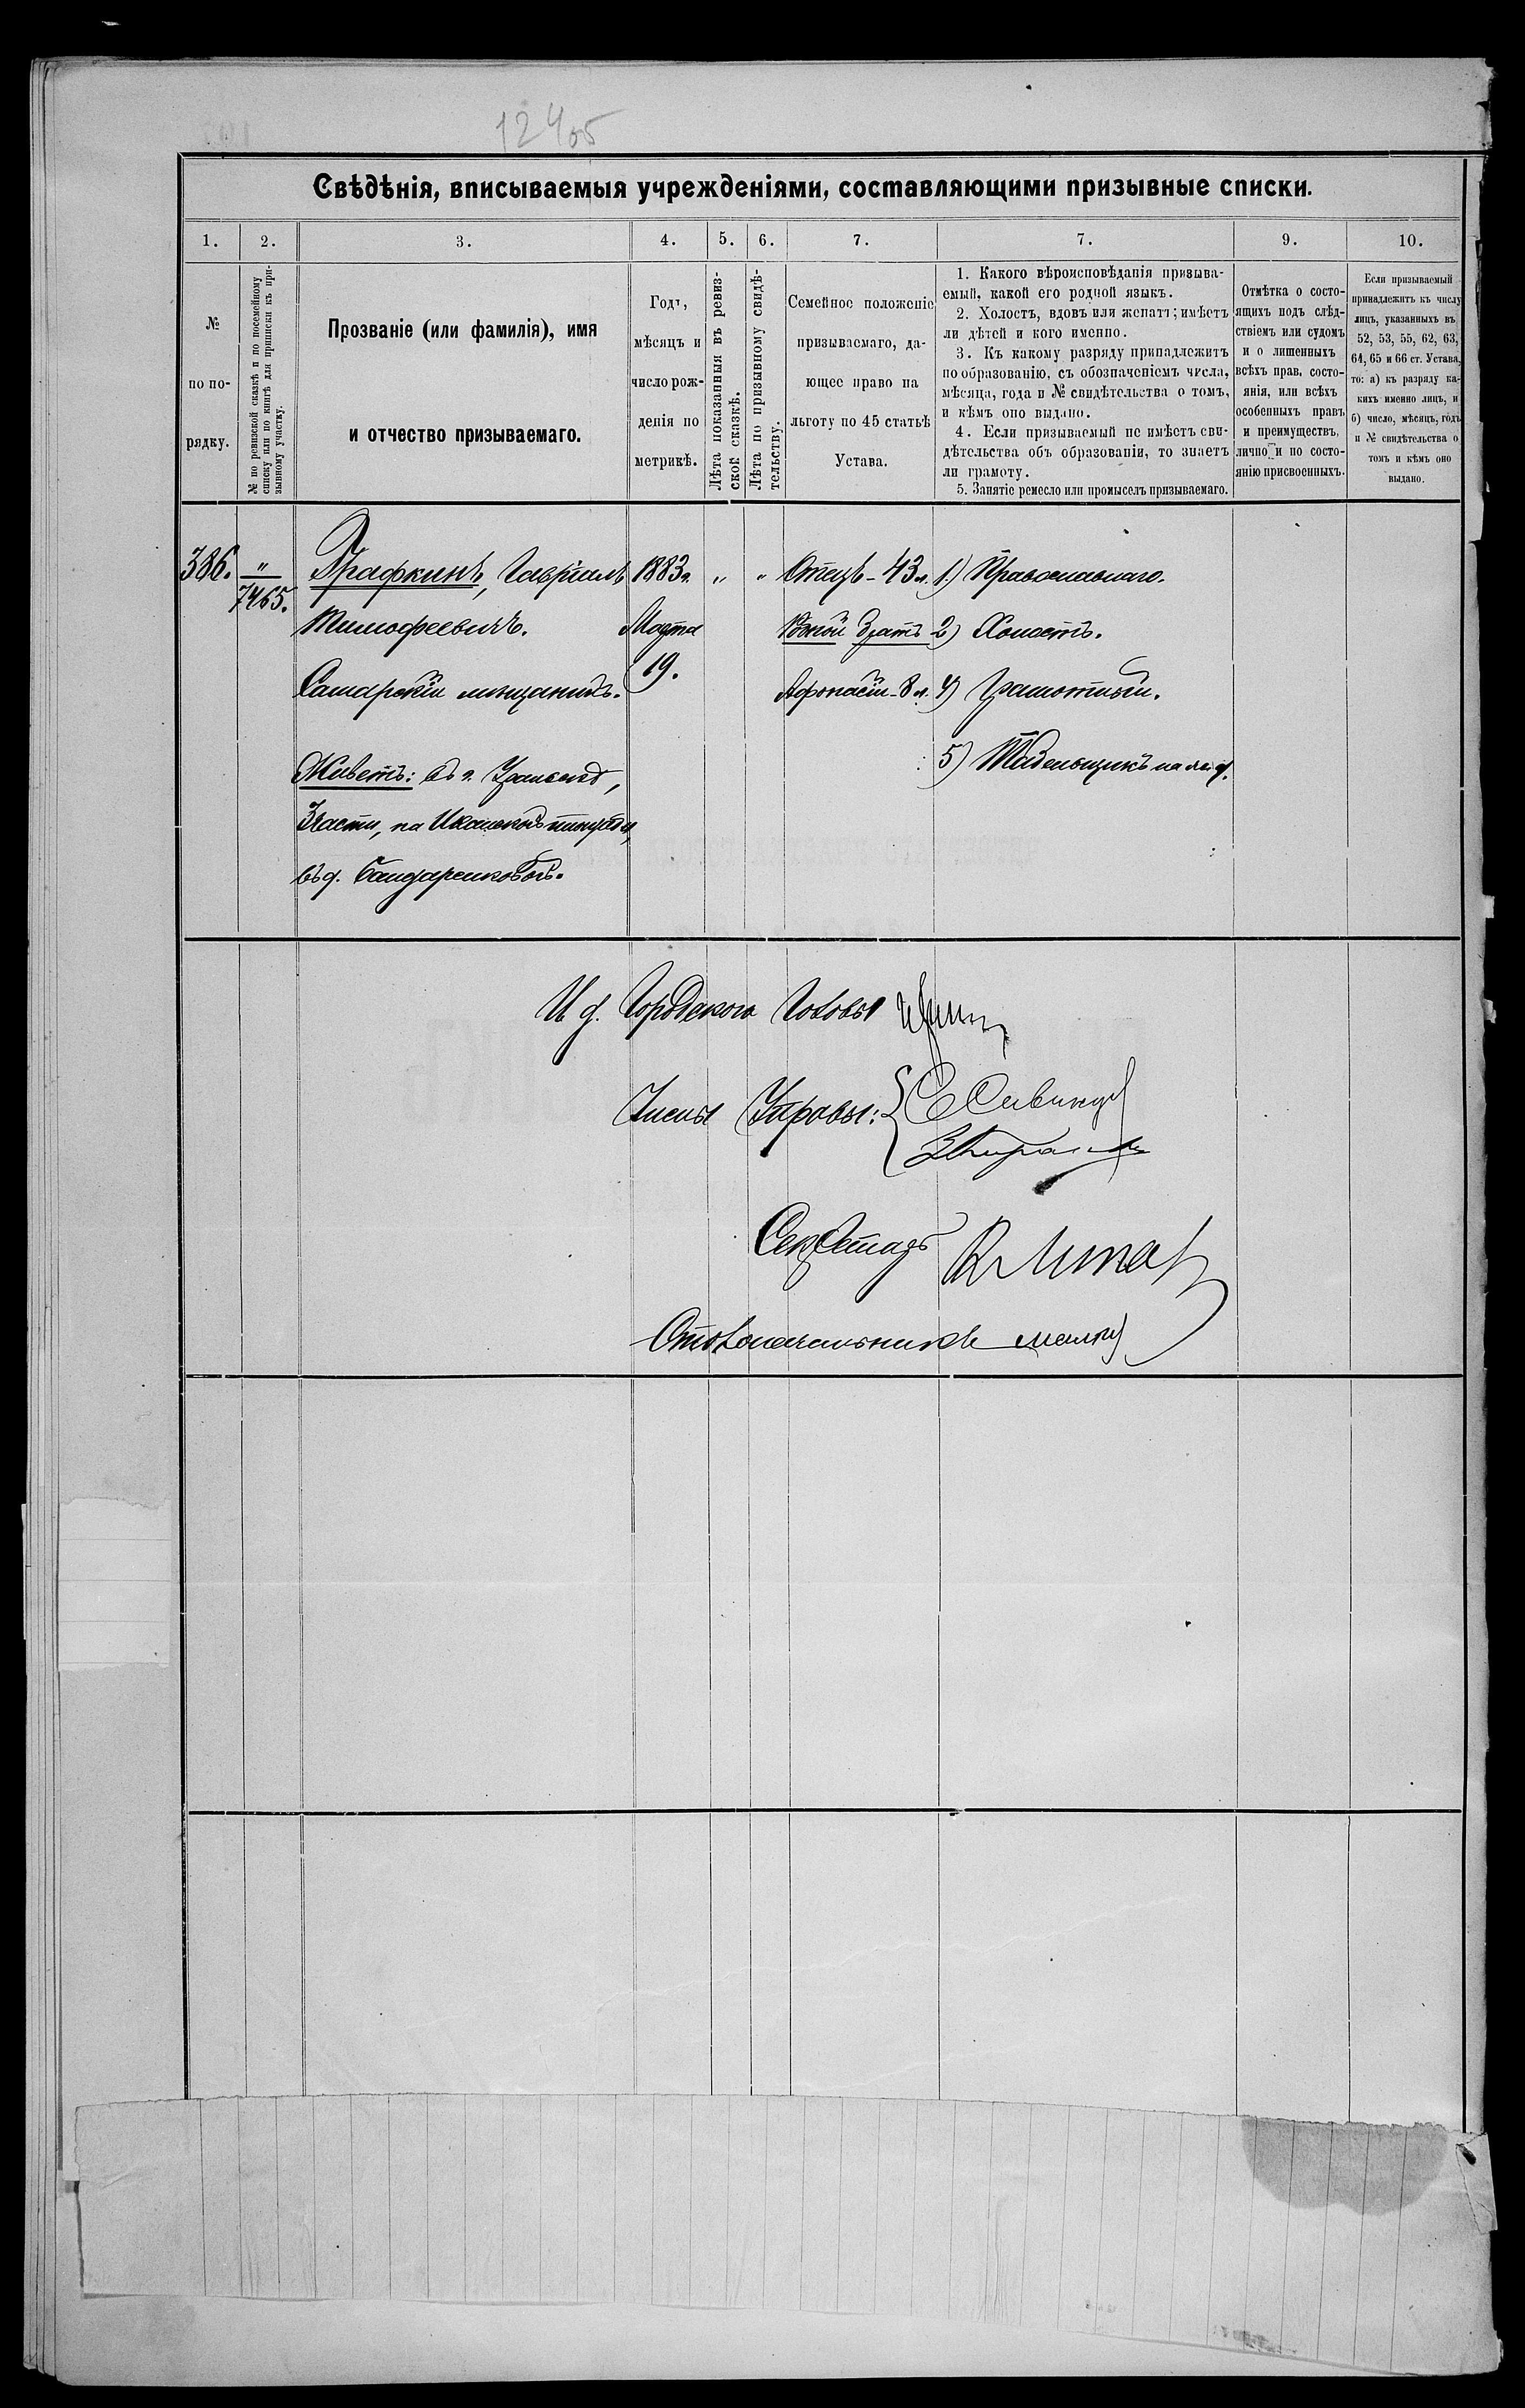 12405
Свѣдѣнія, вписываемыя учрежденіями, составляющими призывные списки.
1. 2. 3. 4. 5. 6. 7. 7. 9. 10.
№
по по-
рядку.
№ по ревизской сказкѣ и по посемейному
списку или по книгѣ для приписки къ при-
зывному участку.
Прозваніе (или фамилія), имя
и отчество призываемаго.
Годъ,
мѣсяцъ и
число рож-
денія по
метрикѣ.
Лѣта показанныя въ ревиз-
ской сказкѣ.
Лѣта по призывному свидѣ-
тельству.
Семейное положеніе
призываемаго, да-
ющее право на
льготу по 45 статьѣ
Устава.
1. Какого вѣроисповѣданія призыва-
емый, какой его родной языкъ.
2. Холостъ, вдовъ или женатъ; имѣетъ
ли дѣтей и кого именно.
3. Къ какому разряду принадлежитъ
по образованію, съ обозначеніемъ числа,
мѣсяца, года и № свидѣтельства о томъ,
и кѣмъ оно выдано.
4. Если призываемый не имѣетъ сви-
дѣтельства объ образованіи, то знаетъ
ли грамоту.
5. Занятіе ремесло или промыселъ призываемаго.
Отмѣтка о состо-
ящихъ подъ слѣд-
ствіемъ или судомъ
и о лишенныхъ
всѣхъ прав, состо-
янія, или всѣхъ
особенныхъ правъ
и преимуществъ,
лично и по состо-
янію присвоенныхъ.
Если призываемый
принадлежитъ къ числу
лицъ, указанныхъ въ
52, 53, 55, 62, 63,
64, 65 и 66 ст. Устава,
то: а) къ разряду ка-
кихъ именно лицъ, и
б) число, мѣсяцъ, годъ
и № свидѣтельства о
томъ и кѣмъ оно
выдано.
386.
"
7465.
Графкинъ, Гавріилъ
Тимофеевичъ.
Самарскій мѣщанинъ.
Живетъ: въ г. Уральскѣ,
3 части, на
въ д. Бандаренковой.
1883 г.
Марта
19.
"
"
Отецъ - 43 л.
Родной братъ
Афонасій - 8 л.
1) Православнаго.
2) Холостъ.
4) Грамотный.
5)
И д. Городского Головы
Члены Управы:
Секретарь
Столоначальникъ